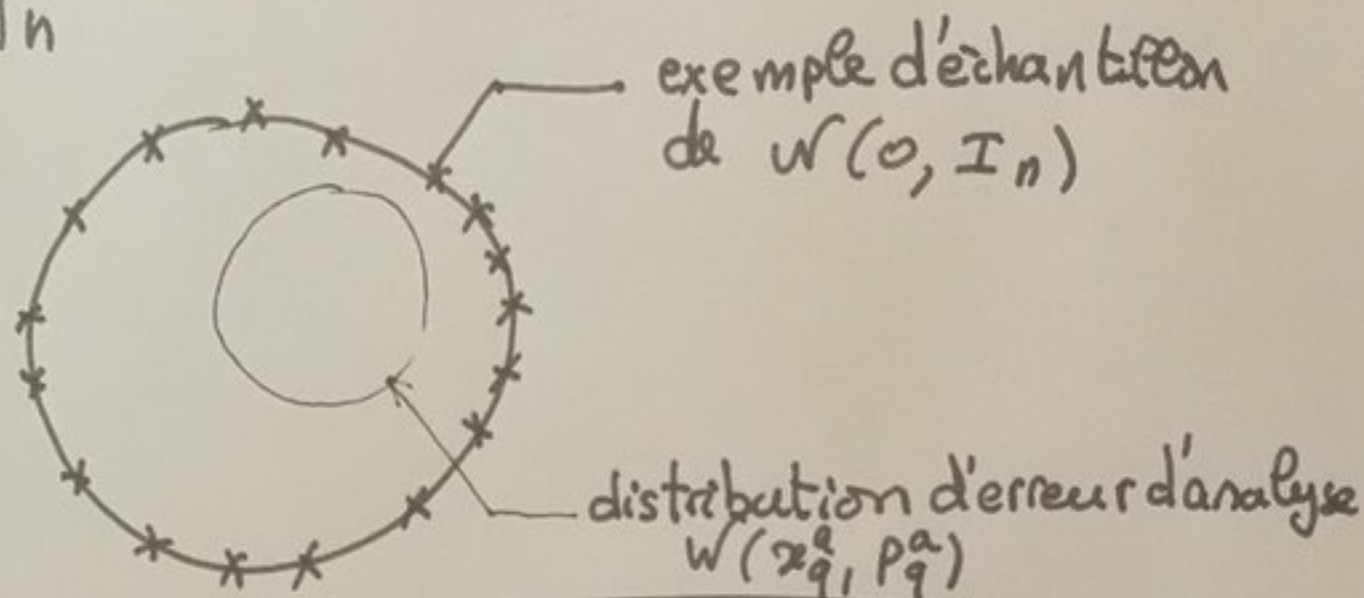 n
exemple d'échantillon
de N(0, I_n)
distribution d'erreur d'analyse
N(x_q^a, P_q^a)